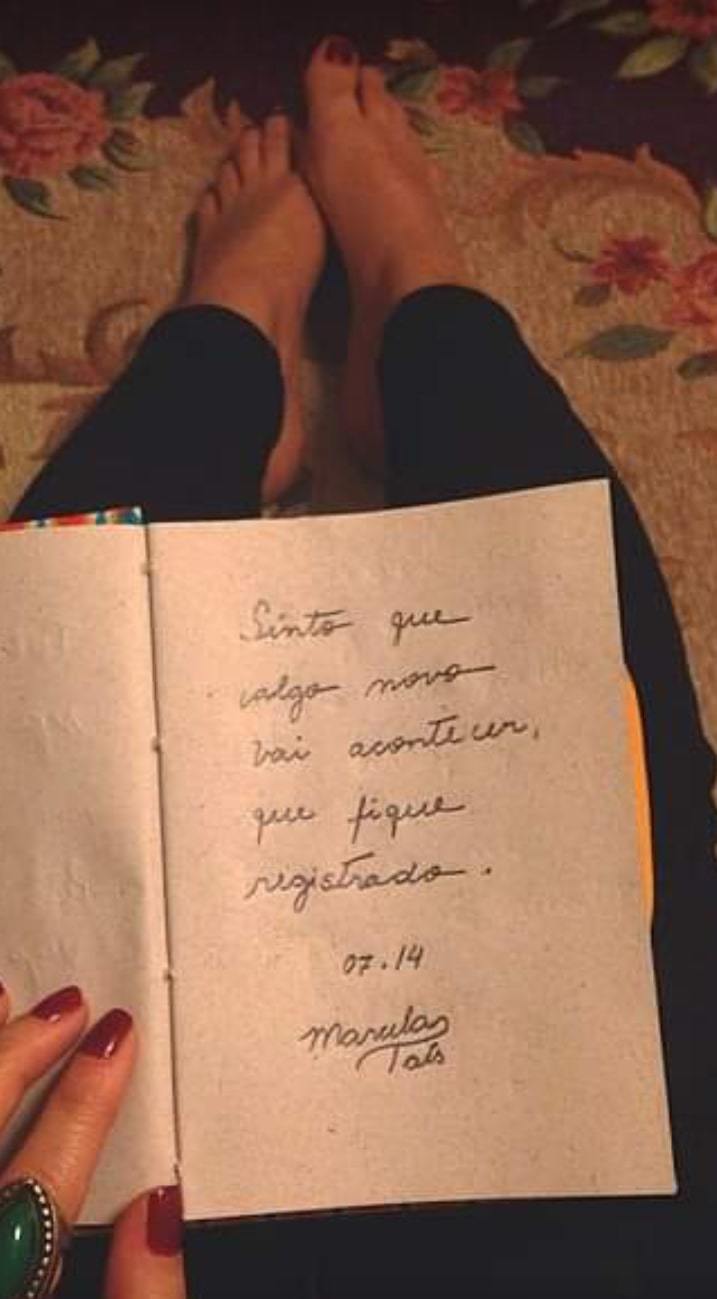 Sinto que
algo novo
vai acontecer,
que fique
registrado.
07.14
Taís